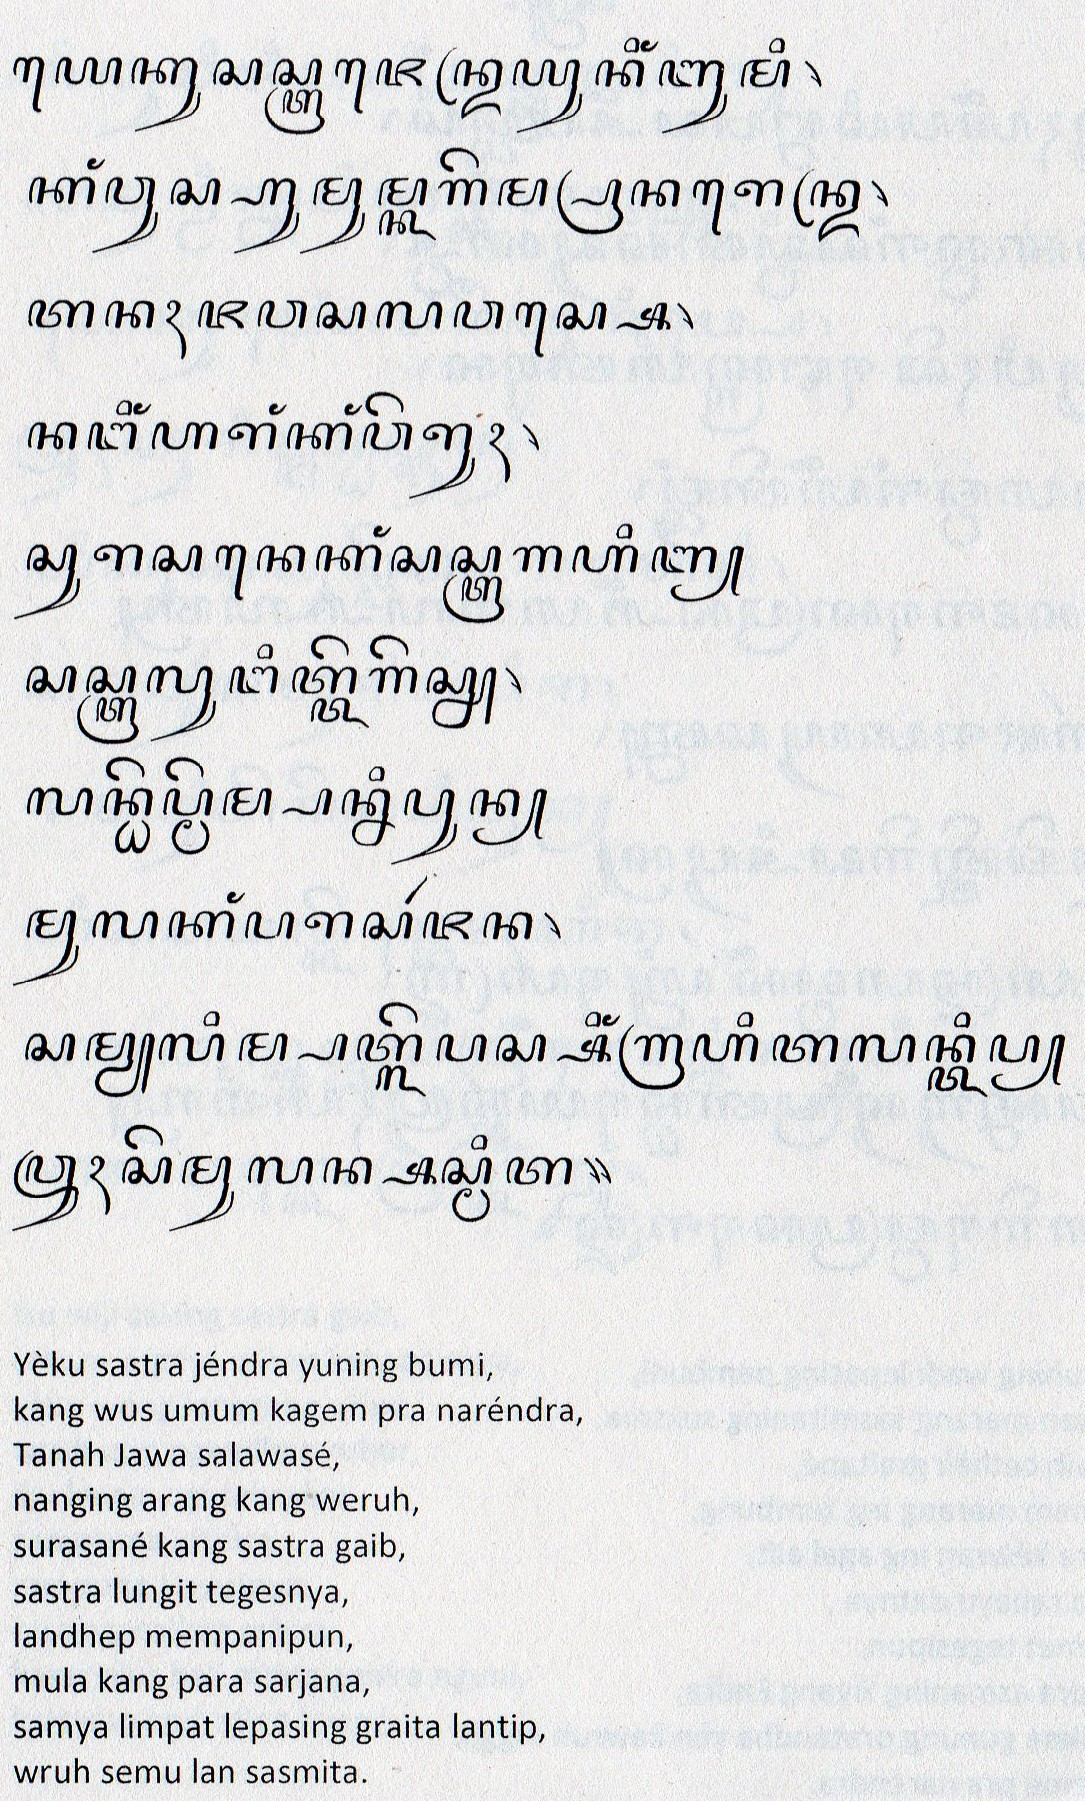 ꦪꦺꦏꦸꦱꦱ꧀ꦠꦿꦗꦺꦤ꧀ꦢꦿꦪꦸꦤꦶꦁꦧꦸꦩꦶ꧈
ꦏꦁꦮꦸꦱ꧀ꦲꦸꦩꦸꦩ꧀ꦏꦒꦼꦩ꧀ꦥꦿꦤꦫꦺꦤ꧀ꦢꦿ꧈
ꦠꦤꦃꦗꦮꦱꦭꦮꦱ꧀ꦱꦺ꧈
ꦤꦔꦶꦁꦲꦫꦁꦏꦁꦮꦼꦫꦸꦃ꧈
ꦱꦸꦫꦱꦤꦺꦏꦁꦱꦱ꧀ꦠꦿꦒꦲꦶꦧ꧀
ꦱꦱ꧀ꦠꦿꦭꦸꦔꦶꦠ꧀ꦠꦼꦒꦼꦱꦾ꧈
ꦭꦤ꧀ꦝꦼꦥ꧀ꦩꦼꦩ꧀ꦥꦤꦶꦥꦸꦤ꧀
ꦩꦸꦭꦏꦁꦥꦫꦱꦂꦗꦤ꧈
ꦱꦩꦾꦭꦶꦩ꧀ꦥꦠ꧀ꦭꦼꦥꦱ꧀ꦱꦶꦁꦒꦿꦲꦶꦠꦭꦤ꧀ꦠꦶꦥ꧀
ꦮꦿꦸꦃꦱꦼꦩꦸꦭꦤ꧀ꦱꦱ꧀ꦩꦶꦠ꧉
Yèku sastra jéndra yuning bumi,
kang wus umum kagem pra naréndra,
Tanah Jawa salawasé,
nanging arang kang weruh,
surasané kang sastra gaib,
sastra lungit tegesnya,
landhep mempanipun,
mula kang para sarjana,
samya limpat lepasing graita lantip,
wruh semu lan sasmita.